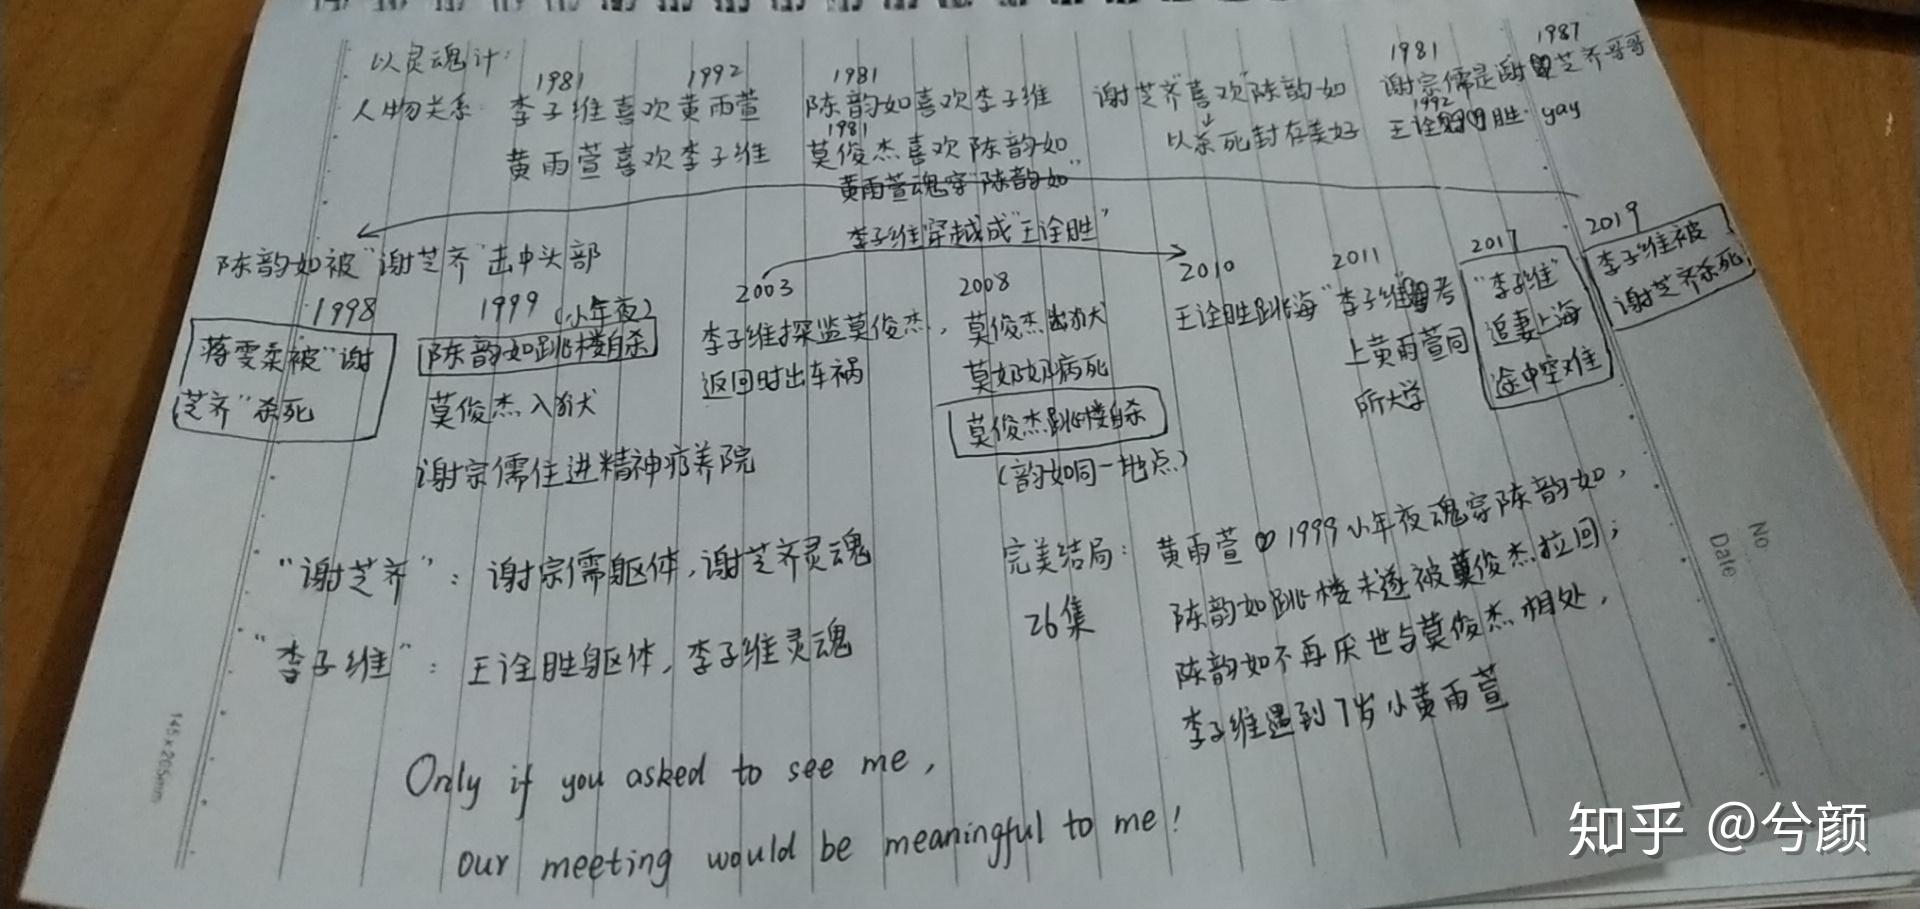 以灵魂计:
1981 1992 1981 1981 1987
人物关系: 李子维喜欢黄雨萱 陈韵如喜欢李子维 谢芝齐"喜欢"陈韵如 谢宗儒是谢芝齐哥哥
1981 1992
黄雨萱喜欢李子维 莫俊杰喜欢陈韵如 以杀死封存美好 王诠胜: gay
黄雨萱魂穿"陈韵如"
李子维穿越成"王诠胜"
陈韵如被"谢芝齐"击中头部
1998
蒋雯柔被"谢
芝齐"杀死
1999 (小年夜)
陈韵如跳楼自杀
莫俊杰入狱
谢宗儒住进精神疗养院
2003
李子维探监莫俊杰,
返回时出车祸
2008
莫俊杰出狱
莫奶奶病死
莫俊杰跳楼自杀
(韵如同一地点)
2010
王诠胜跳海
2011
"李子维"考
上黄雨萱同
所大学
2017
"李子维"
追妻上海
途中空难
2019
李子维被
谢芝齐杀死
"谢芝齐": 谢宗儒躯体,谢芝齐灵魂
"李子维": 王诠胜躯体,李子维灵魂
完美结局:
26集
黄雨萱 1999小年夜魂穿陈韵如,
陈韵如跳楼未遂被莫俊杰拉回;
陈韵如不再厌世与莫俊杰相处,
李子维遇到7岁小黄雨萱
Only if you asked to see me,
our meeting would be meaningful to me!
No
Date
145×205mm
知乎 @兮颜